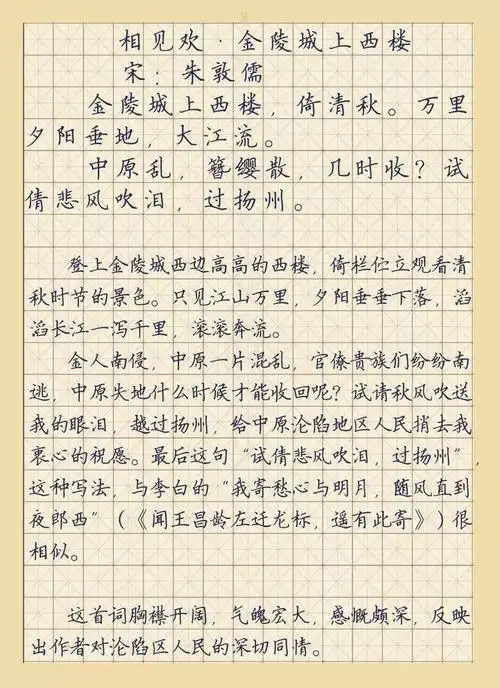 相见欢·金陵城上西楼
宋：朱敦儒
金陵城上西楼，倚清秋。万里
夕阳垂地，大江流。
中原乱，簪缨散，几时收？试
倩悲风吹泪，过扬州。
登上金陵城西边高高的西楼，倚栏伫立观看清
秋时节的景色。只见江山万里，夕阳垂垂下落，滔
滔长江一泻千里，滚滚奔流。
金人南侵，中原一片混乱，官僚贵族们纷纷南
逃，中原失地什么时候才能收回呢？试请秋风吹送
我的眼泪，越过扬州，给中原沦陷地区人民捎去我
衷心的祝愿。最后这句“试倩悲风吹泪，过扬州”，
这种写法，与李白的“我寄愁心与明月，随风直到
夜郎西”（《闻王昌龄左迁龙标，遥有此寄》）很
相似。
这首词胸襟开阔，气魄宏大，感慨颇深，反映
出作者对沦陷区人民的深切同情。